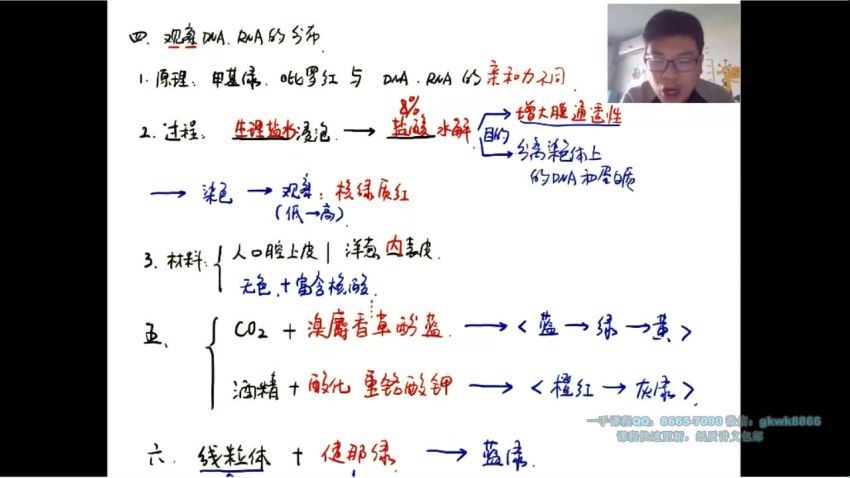 四. 观察DNA.RNA的分布
1. 原理: 甲基绿. 吡罗红与 DNA.RNA的亲和力不同.
8%
2. 过程: 生理盐水浸泡 → 盐酸水解 目的 → 增大膜通透性
→ 分离染色体上
的DNA和蛋白质
→ 染色 → 观察: 核绿质红
(低→高)
3. 材料: { 人口腔上皮 | 洋葱内表皮.
无色 + 富含核酸
五、 { CO2 + 溴麝香草酚蓝 → <蓝→绿→黄>
酒精 + 酸化重铬酸钾 → <橙红→灰绿>
一手课程QQ: 8665-7090 微信: gkwk8866
课程快速更新,纸质讲义包邮
六. 线粒体 + 健那绿 → 蓝绿.